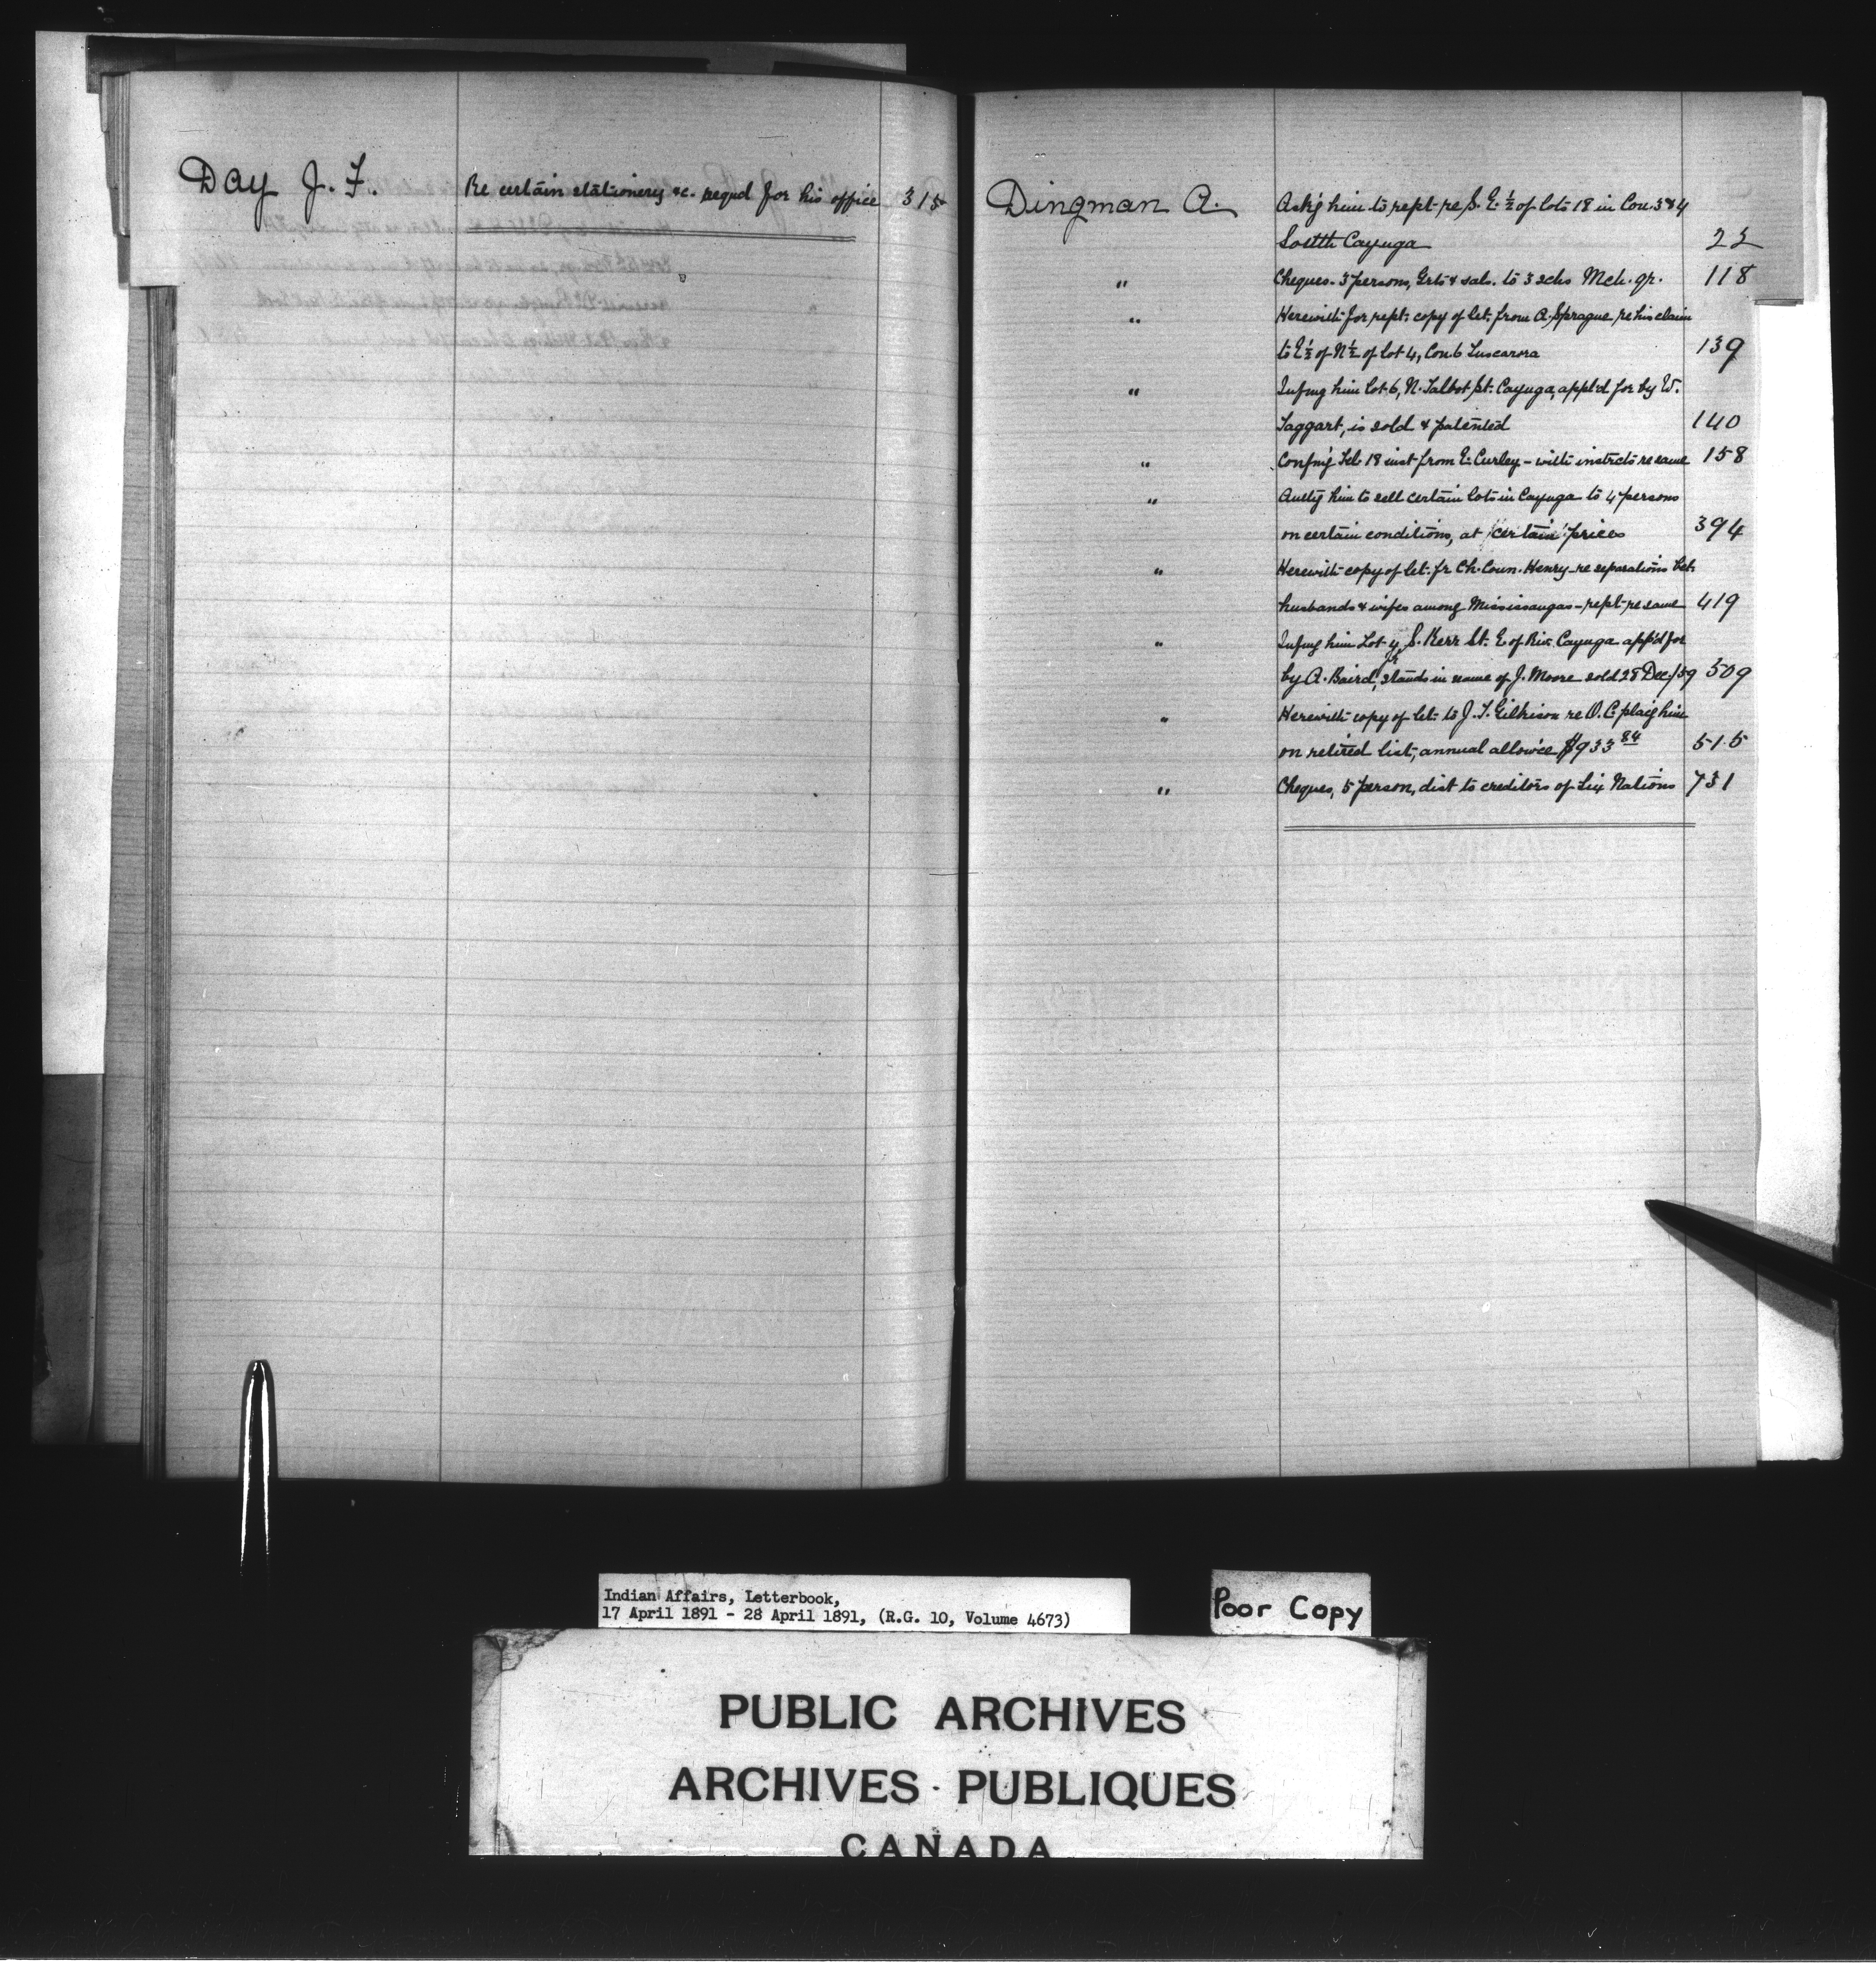 Day J. F. Re certain stationery &c. reqred for his office 315
Dingman A. Ask'g him to rept. re S. E. ½ of lots 18 in Con. 3 & 4
South Cayuga 22
" Cheques. 3 persons, Grts & sals. to 3 schs Mch. qr. 118
" Herewith for rept. copy of let. from A. Sprague re his claim
to E ½ of N ½ of lot 4, Con. 6 Tuscarora 139
" Infmg him lot 6, N. Talbot St. Cayuga, appl'd for by W.
Taggart, is sold & patented 140
" Confm'g Tel. 18 inst from E. Curley - with instrcts re same 158
" Authg him to sell certain lots in Cayuga to 4 persons
on certain conditions, at certain prices 394
" Herewith copy of let. fr Ch. Coun. Henry re separations bet.
husbands & wifes among Mississaugas - rept re same 419
" Infmg him Lot 4, S. Kerr St. E of Riv. Cayuga app'd for
by A. Baird, jr stands in name of J. Moore sold 28 Dec/59 509
" Herewith copy of let. to J. T. Gilkison re O. C. plac'g him
on retired list, annual allow'ce $933 84 515
" Cheques, 5 person, dist to creditors of Six Nations 731
Indian Affairs, Letterbook,
17 April 1891 - 28 April 1891, (R.G. 10, Volume 4673)
Poor Copy
PUBLIC ARCHIVES
ARCHIVES PUBLIQUES
CANADA